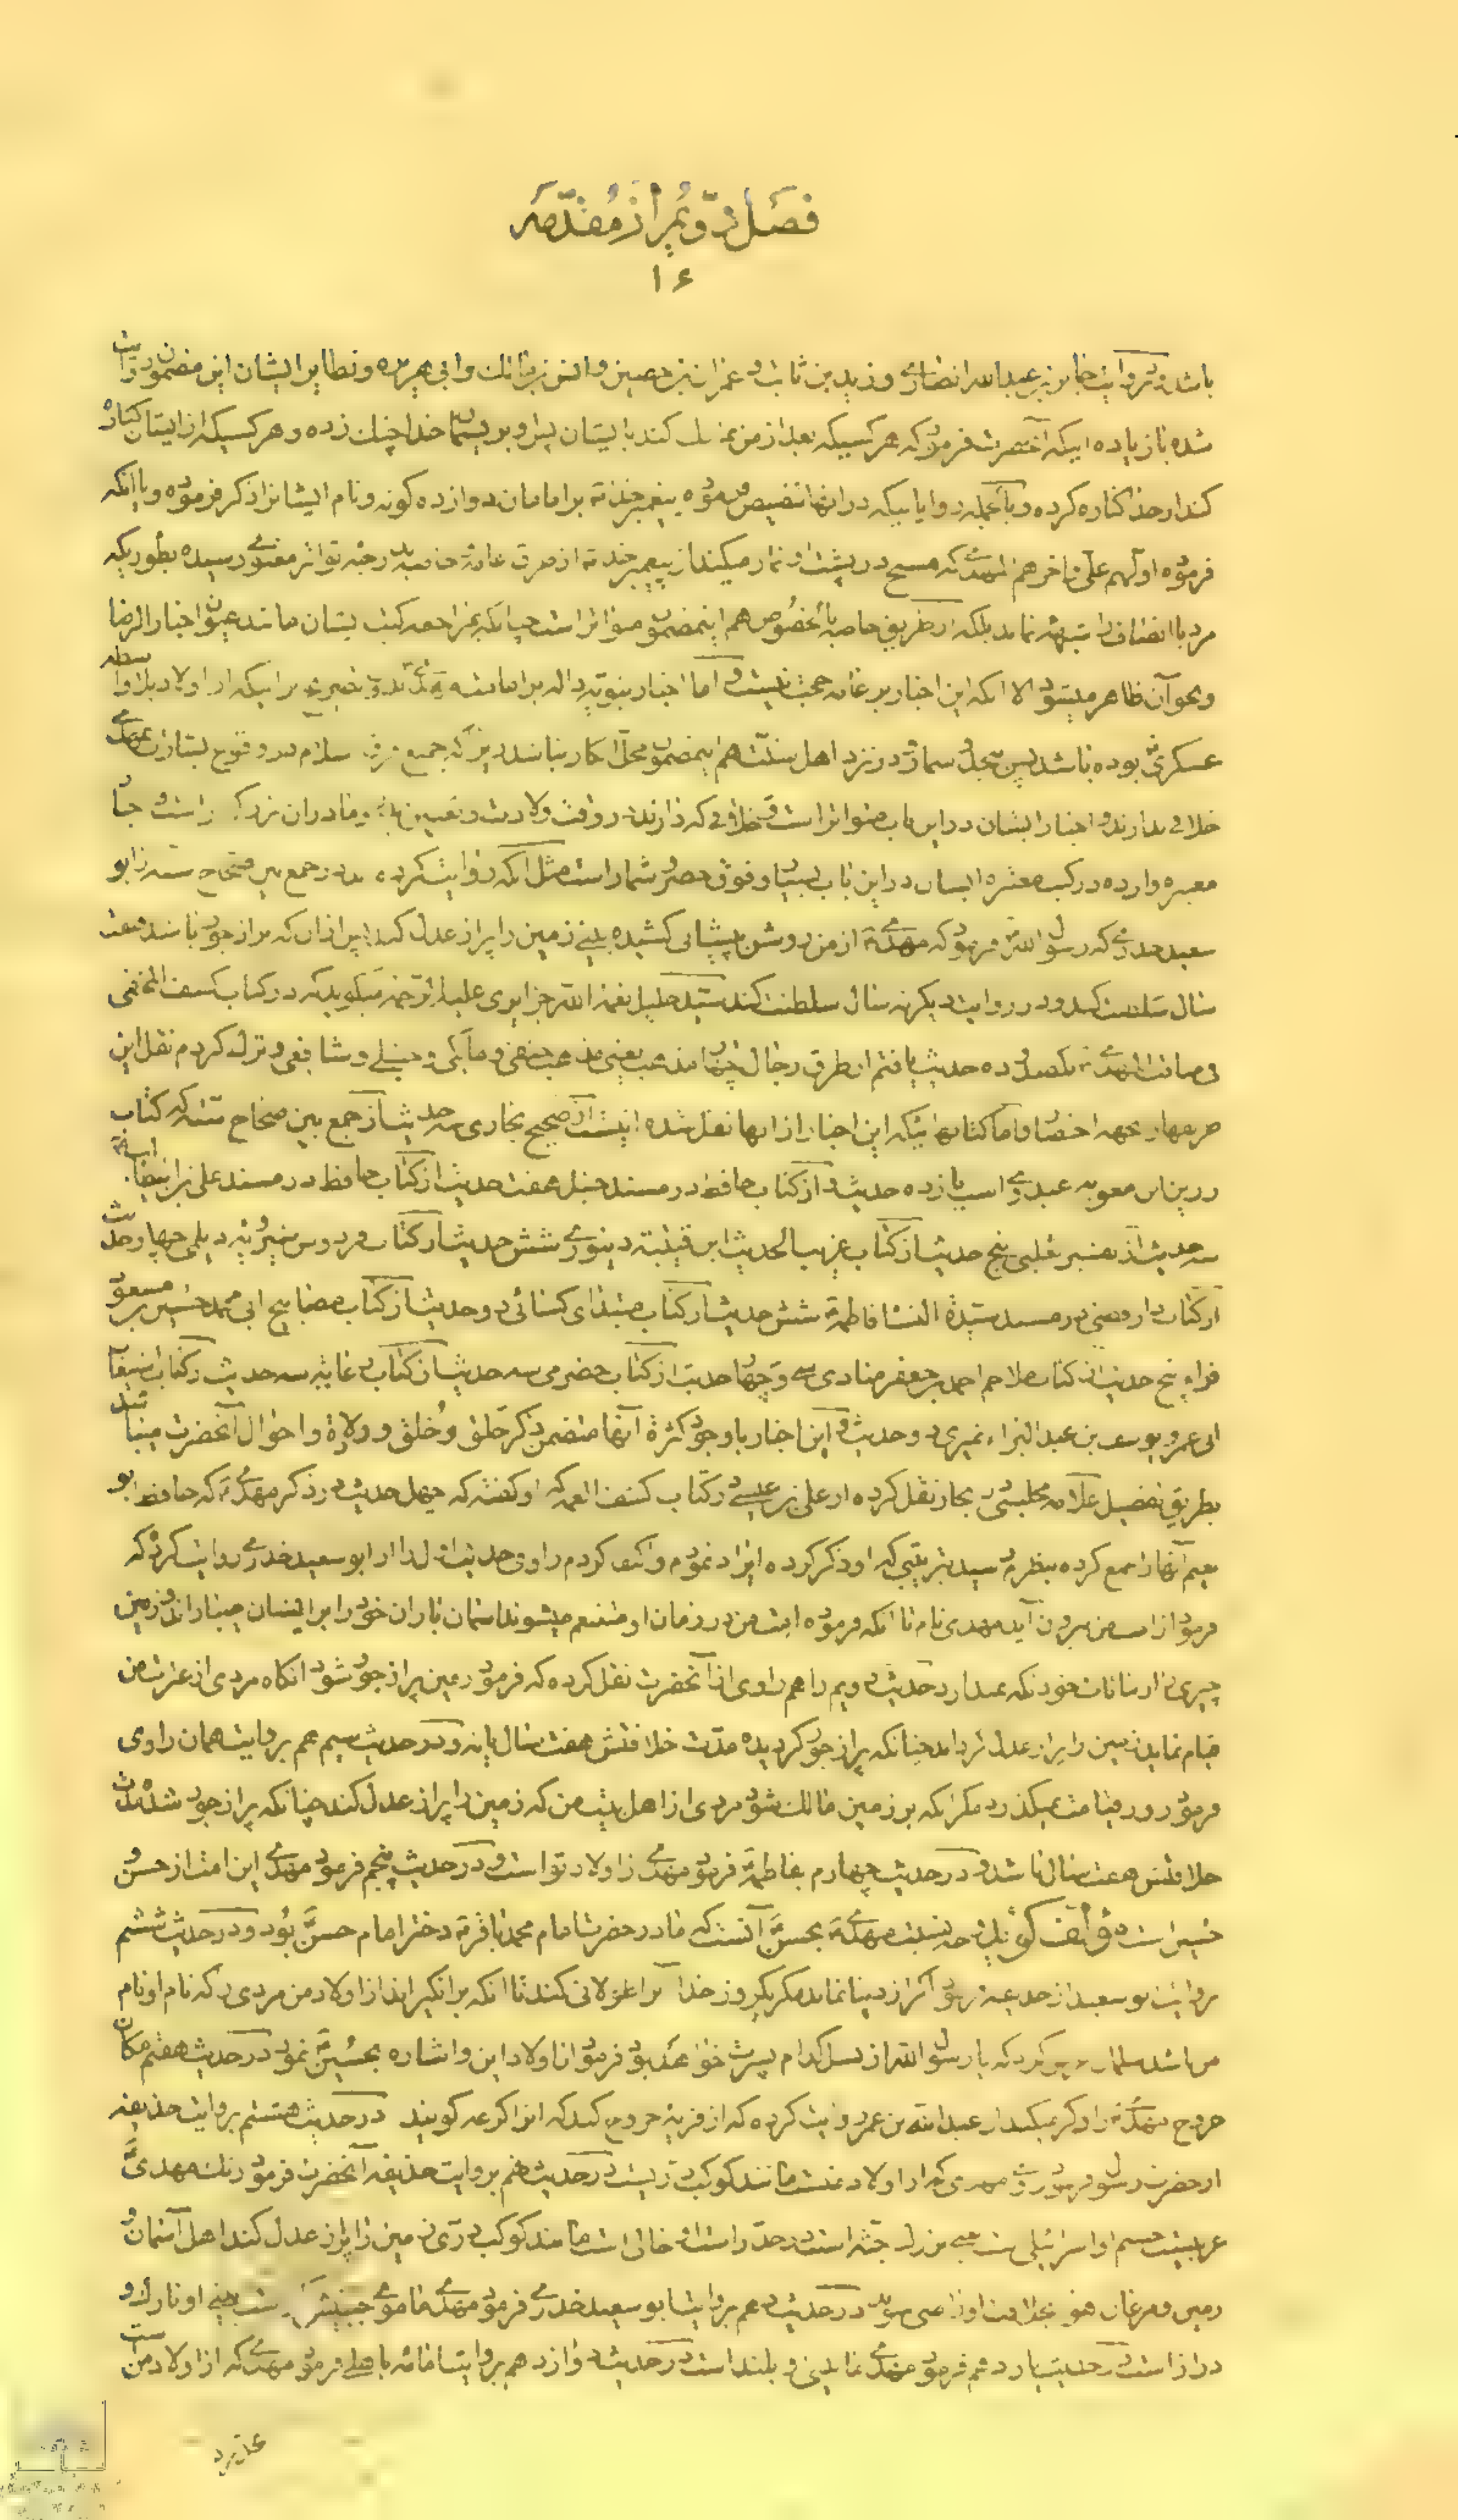 فصل دویم از مقدمه
۱۶
باشد و بروایت جابر بن عبدالله انصاری و زید بن ثابت و عمران بن حصین و انس بن مالک و ابی هریره و نظایر ایشان این مضمون روایت
شده با زیاده اینکه آنحضرت فرمود که هر کسیکه بعد از من تمسک کند بایشان پس او بریسمان خدا چنک زده و هر کسیکه از ایشان کناره
کند از خدا کناره کرده و بآنجمله روایاتیکه در آنها تنصیص فرموده پیغمبر خدا بر امامان دوازده گونه و نام ایشانرا ذکر فرموده و باانکه
فرموده اولهم علی و آخرهم المهدی که مسیح در پشت او نماز میکند از پیغمبر خدا از طرق عامه و خاصه بدرجه تواتر معنوی رسیده بطوریکه
مرد با انصاف را شبهه نماند بلکه از طریق خاصه بالخصوص هم اینمضمون متواتر است چنانکه بمراجعه کتب ایشان مانند عیون اخبار الرضا
و نحو آن ظاهر میشود الا انکه این اخبار بر عامه حجت نیست و اما اخبار نبویه داله بر امامت مهدی بدون تصریح بر اینکه از اولاد بلا واسطه
عسکری بوده باشد پس نزد اهل سنت هم اینمضمون محل انکار نباشد زیرا که جمیع فرق اسلام در وقوع بشارت بمهدی
خلافی ندارند و اخبار ایشان در این باب متواتر است و خلافی که دارند در وقت ولادت و تعیین پدر و مادر آن بزرگوار است
معتبره وارده در کتب معتبره ایشان در این باب بسیار و فوق حصر و شمار است مثل انکه روایت کرده در جمع بین صحاح سته از ابو
سعید خدری که رسول الله فرمود که مهدی از من روشن پیشانی کشیده بینی زمین را پر از عدل کند پس از ان که پر از جور باشد هفت
سال سلطنت کند و در روایت دیگر نه سال سلطنت کند سید جلیل نعمة الله جزایری علیه الرحمه میگوید که در کتاب کشف المخفی
فی مناقب المهدی یکصد و ده حدیث یافتم از طرق رجال چهار مذهب یعنی مذهب حنفی و مالکی و حنبلی و شافعی و ترک کردم نقل این
اخبار بجهة اختصار و اما کتابهائیکه این اخبار از انها نقل شده اینست از صحیح بخاری سه حدیث از جمع بین صحاح سته که کتاب
رزین بن معویه عبدری است یازده حدیث و از کتاب حافظ در مسند حنبل هفت حدیث از کتاب حافظ در مسند علی نیز ایضا
سه حدیث از تفسیر ثعلبی پنج حدیث از کتاب غریب الحدیث ابن قتیبه دینوری شش حدیث از کتاب فردوس شیرویه دیلمی چهار حدیث
از کتاب دارقطنی در مسند سیدة النساء فاطمة شش حدیث از کتاب مبتدای کسائی دو حدیث از کتاب مصابیح ابی محمد حسین بن مسعود
فراء پنج حدیث از کتاب ملاحم احمد بن جعفر منادی سی و چهار حدیث از کتاب حضرمی سه حدیث از کتاب رعایه سه حدیث از کتاب استیعاب
ابی عمرو یوسف بن عبد البر نمیری دو حدیث و این اخبار با وجود کثرة آنها متضمن ذکر خلق و خلق و ولادة و احوال آنحضرت میباشد
بطریق تفصیل علامه مجلسی در بحار نقل کرده از علی بن عیسی در کتاب کشف الغمه که او گفته که چهل حدیث در ذکر مهدی که حافظ ابو
نعیم آنها را جمع کرده بنظرم رسید بترتیبی که او ذکر کرده ایراد نمودم و اکتفا کردم براوی حدیث اول از ابو سعید خدری روایت کرده که
فرمود از امت من بیرون آید مهدی نام تا انکه فرموده امت من در زمان او متنعم میشوند آسمان باران خود را بر ایشان میباراند و زمین
چیزی از نباتات خود نگه نمیدارد حدیث دویم را هم راوی از آنحضرت نقل کرده که فرمود زمین پر از جور شود انگاه مردی از عترت من
قیام نماید زمین را پر از عدل گرداند چنانکه پر از جور گردیده مدت خلافتش هفت سال یا نه و در حدیث سیم هم بروایت همان راوی
فرمود روز قیامت نمیگذرد مگر انکه بر زمین مالک شود مردی از اهلبیت من که زمین را پر از عدل کند چنانکه پر از جور شده مدت
خلافتش هفت سال باشد و در حدیث چهارم بفاطمة فرمود مهدی از اولاد تو است و در حدیث پنجم فرمود مهدی این امت از حسن و
حسین است مؤلف گوید وجه نسبت مهدی بحسن آنست که مادر حضرت امام محمد باقر دختر امام حسن بود و در حدیث ششم
بروایت از حذیفه فرمود اگر از دنیا نماند مگر یکروز خدا آنرا طولانی کند تا انکه برانگیزاند از اولاد من مردی را که نام او نام
من باشد سلمان عرض کرد که یا رسول الله از نسل کدام پسرت خواهد بود فرمود از اولاد این و اشاره بحسین نمود در حدیث هفتم مکان
خروج مهدی را ذکر میکند از عبدالله بن عمر روایت کرده که از قریه خروج کند که انرا کرعه گویند در حدیث هشتم بروایت حذیفه
از حضرت رسول فرمود روی مهدی که از اولاد منست مانند کوکب دریست در حدیث نهم بروایت حذیفه آنحضرت فرمود رنک مهدی
عربیست جسم او اسرائیلی است یعنی بزرک جثه است در خد راست او خالی است مانند کوکب دری زمین را پر از عدل کند اهل آسمان و
زمین و مرغان هوا بخلافت او راضی شوند در حدیث دهم بروایت ابو سعید خدری فرمود مهدی ما موی جبینش بینی او نازک و
دراز است در حدیث یازدهم فرمود مهدی ما بینی بلند است در حدیث دوازدهم بروایت امامه باهلی فرمود مهدی که از اولاد من است